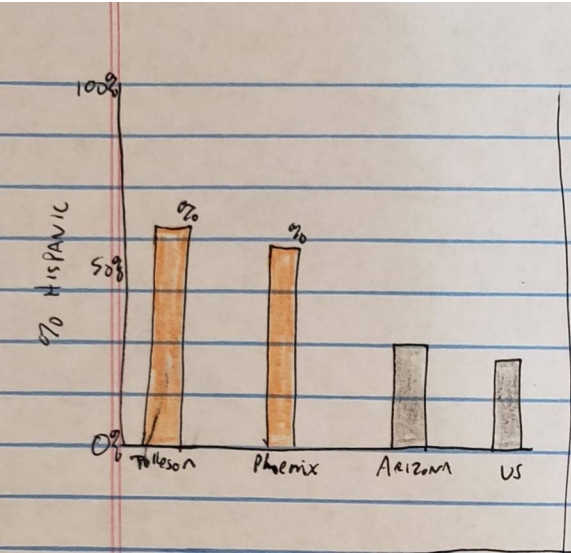 100%
%
%
50%
% HISPANIC
0%
Tolleson
Phoenix
ARIZONA
US